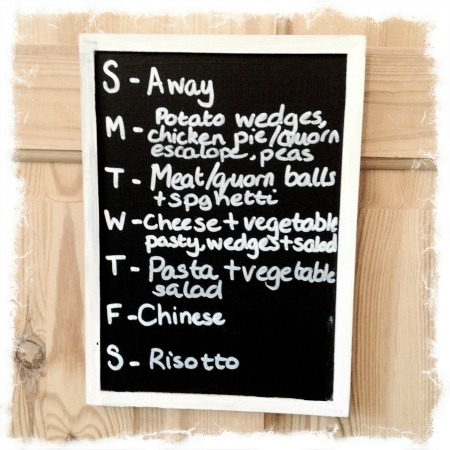 S - Away
M - Potato wedges,
chicken pie/quorn
escalope, peas
T - Meat/quorn balls
+ spghetti
W - Cheese + vegetable
pasty, wedges + salad
T - Pasta + vegetable
salad
F - Chinese
S - Risotto